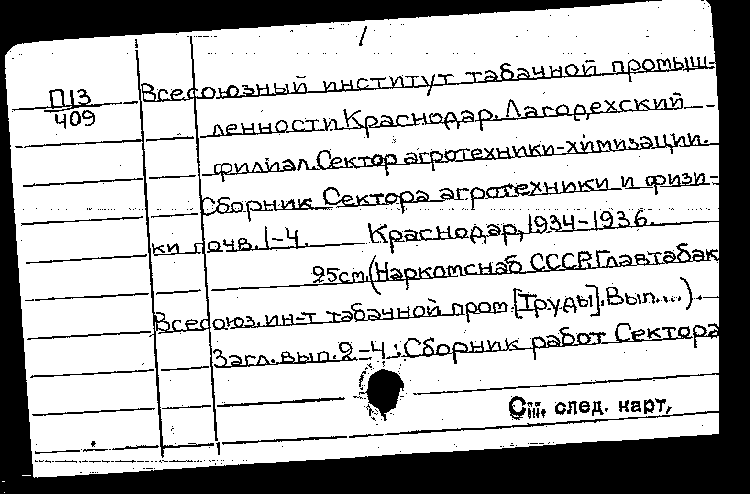 1
П13
409
Всесоюзный институт табачной промыш-
ленности. Краснодар. Лагодехский
филиал. Сектор агротехники-химизации.
Сборник Сектора агротехники и физи-
ки почв. 1-4. Краснодар, 1934-1936.
25см. (Наркомснаб СССР. Главтабак
Всесоюз. ин-т табачной пром. [Труды]. Вып....).
Загл. вып. 2-4: Сборник работ Сектора
См. след. карт,